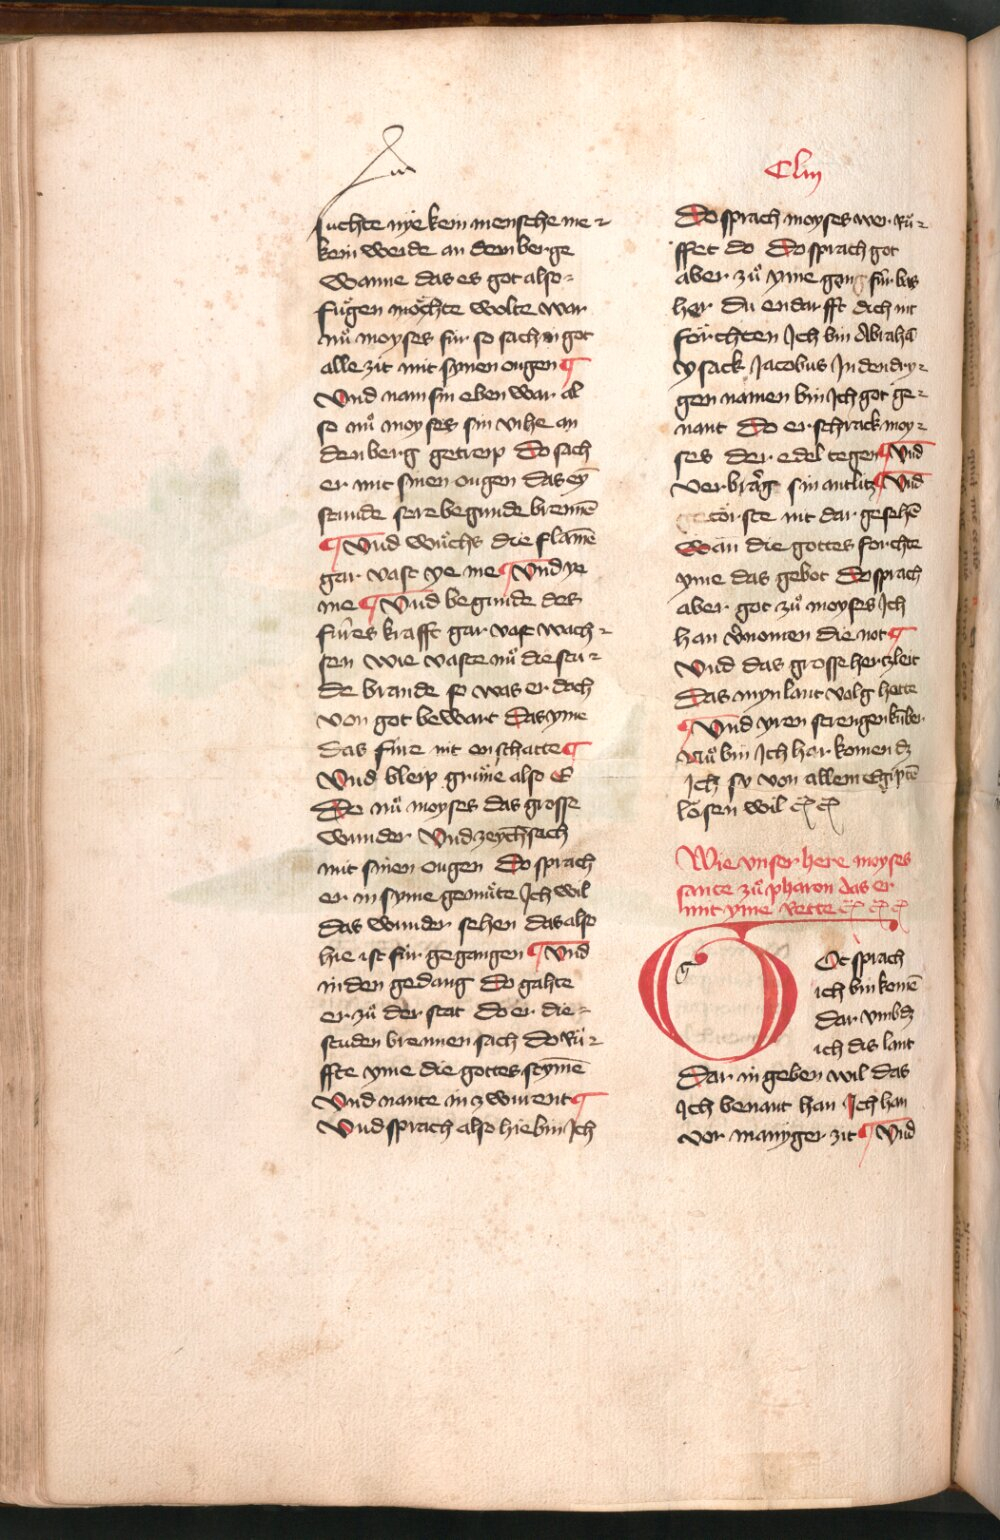 Clııȷ
suchte nye kein mensche me-
kein weide an dem berge
Wanne das es got also-
fuͤgen moͤchte wolte war
nuͦ moyses fuͤr so sach in got
alle zit mit synen ougen ¶
Vnd nam sin eben war al
so nuͦ moyses sin vihe an
den berg getreip Do sach
er mit sinen ougen das ey̅
stude sere begunde brenne̅
¶ Vnd wuͦchs die flam̅e
gar vast ye me ¶ Vnd ye
me ¶ Vnd begunde des
fuͤres krafft gar vast wach-
sen wie vaste nuͦ die stu-
de brande so was er doch
von got bewart Das yme
das fuͤre nit enschatte ¶
Vnd bleip gruͤne also E
Do nuͦ moyses das grosse
wunder Vnd zeych sach
mit sinen ougen Do sprach
er in syme gemuͤte Ich wil
das wunder sehen das also
hie ist fuͤr gegangen ¶ Vnd
in den gedang Do gahte
er zuͦ der stat Do er die-
studen brennen sach Do ruͦ-
ffte yme die gottes stym̅e
Vnd nante in zwurent ¶
Vnd sprach also hie bin Ich
Do sprach moyses wer ruͦ-
ffet do Do sprach got
aber zuͦ yme gang fuͤr bas
her Du endarfft dich nit
foͤrchten Ich bin Abraha̅
ysack Jacobus In den dry-
gen namen bin Ich got ge-
nant Do erschrack moy-
ses der edel tegen ¶ Vnd
verbarg sin antlitz ¶ Vnd
getorste nit dar gesehe̅
Wan die gottes forchte
yme das gebot Do sprach
aber got zuͦ moyses Ich
han v̾nomen die not ¶
Vnd das grosse hertzleit
Das myn lant volg hette
¶ Vnd yren strengen ku̅ber
Nuͦ bin Ich har komen dz
Ich sy von allem Egipte̅
loͤsen wil
Wie vnser here moyses
sante zuͦ pharon das er
mit yme rette
GOt sprach
ich bin kome̅
Dar vmb dz
ich dis lant
Dar in geben wil das
Ich benant han Ich han
vor maniger zit ¶ Vnd